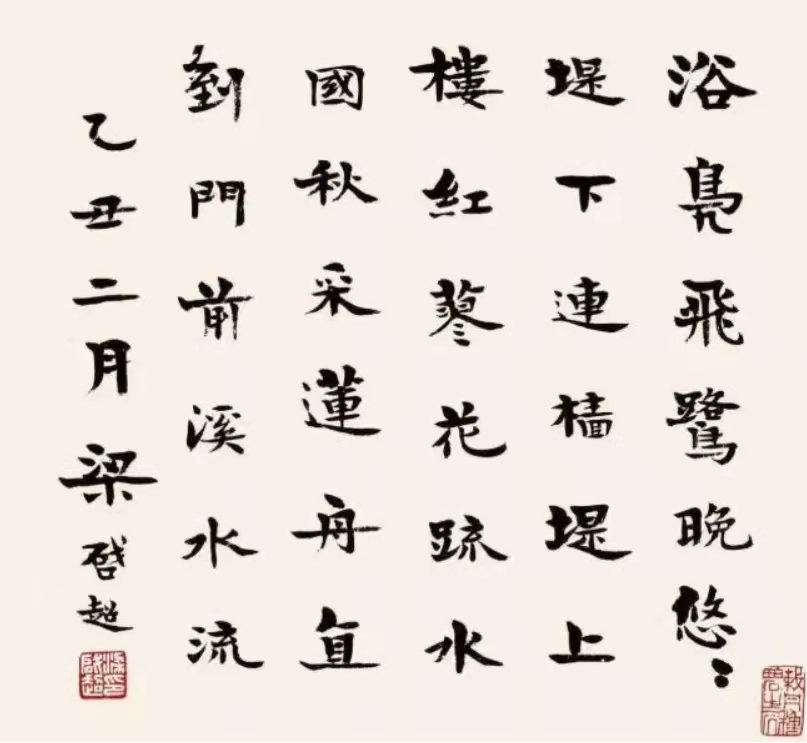 浴鳧飛鷺晚悠〻
堤下連檣堤上
樓紅蓼花疏水
國秋采蓮舟直
到門前溪水流
乙丑二月梁啓超